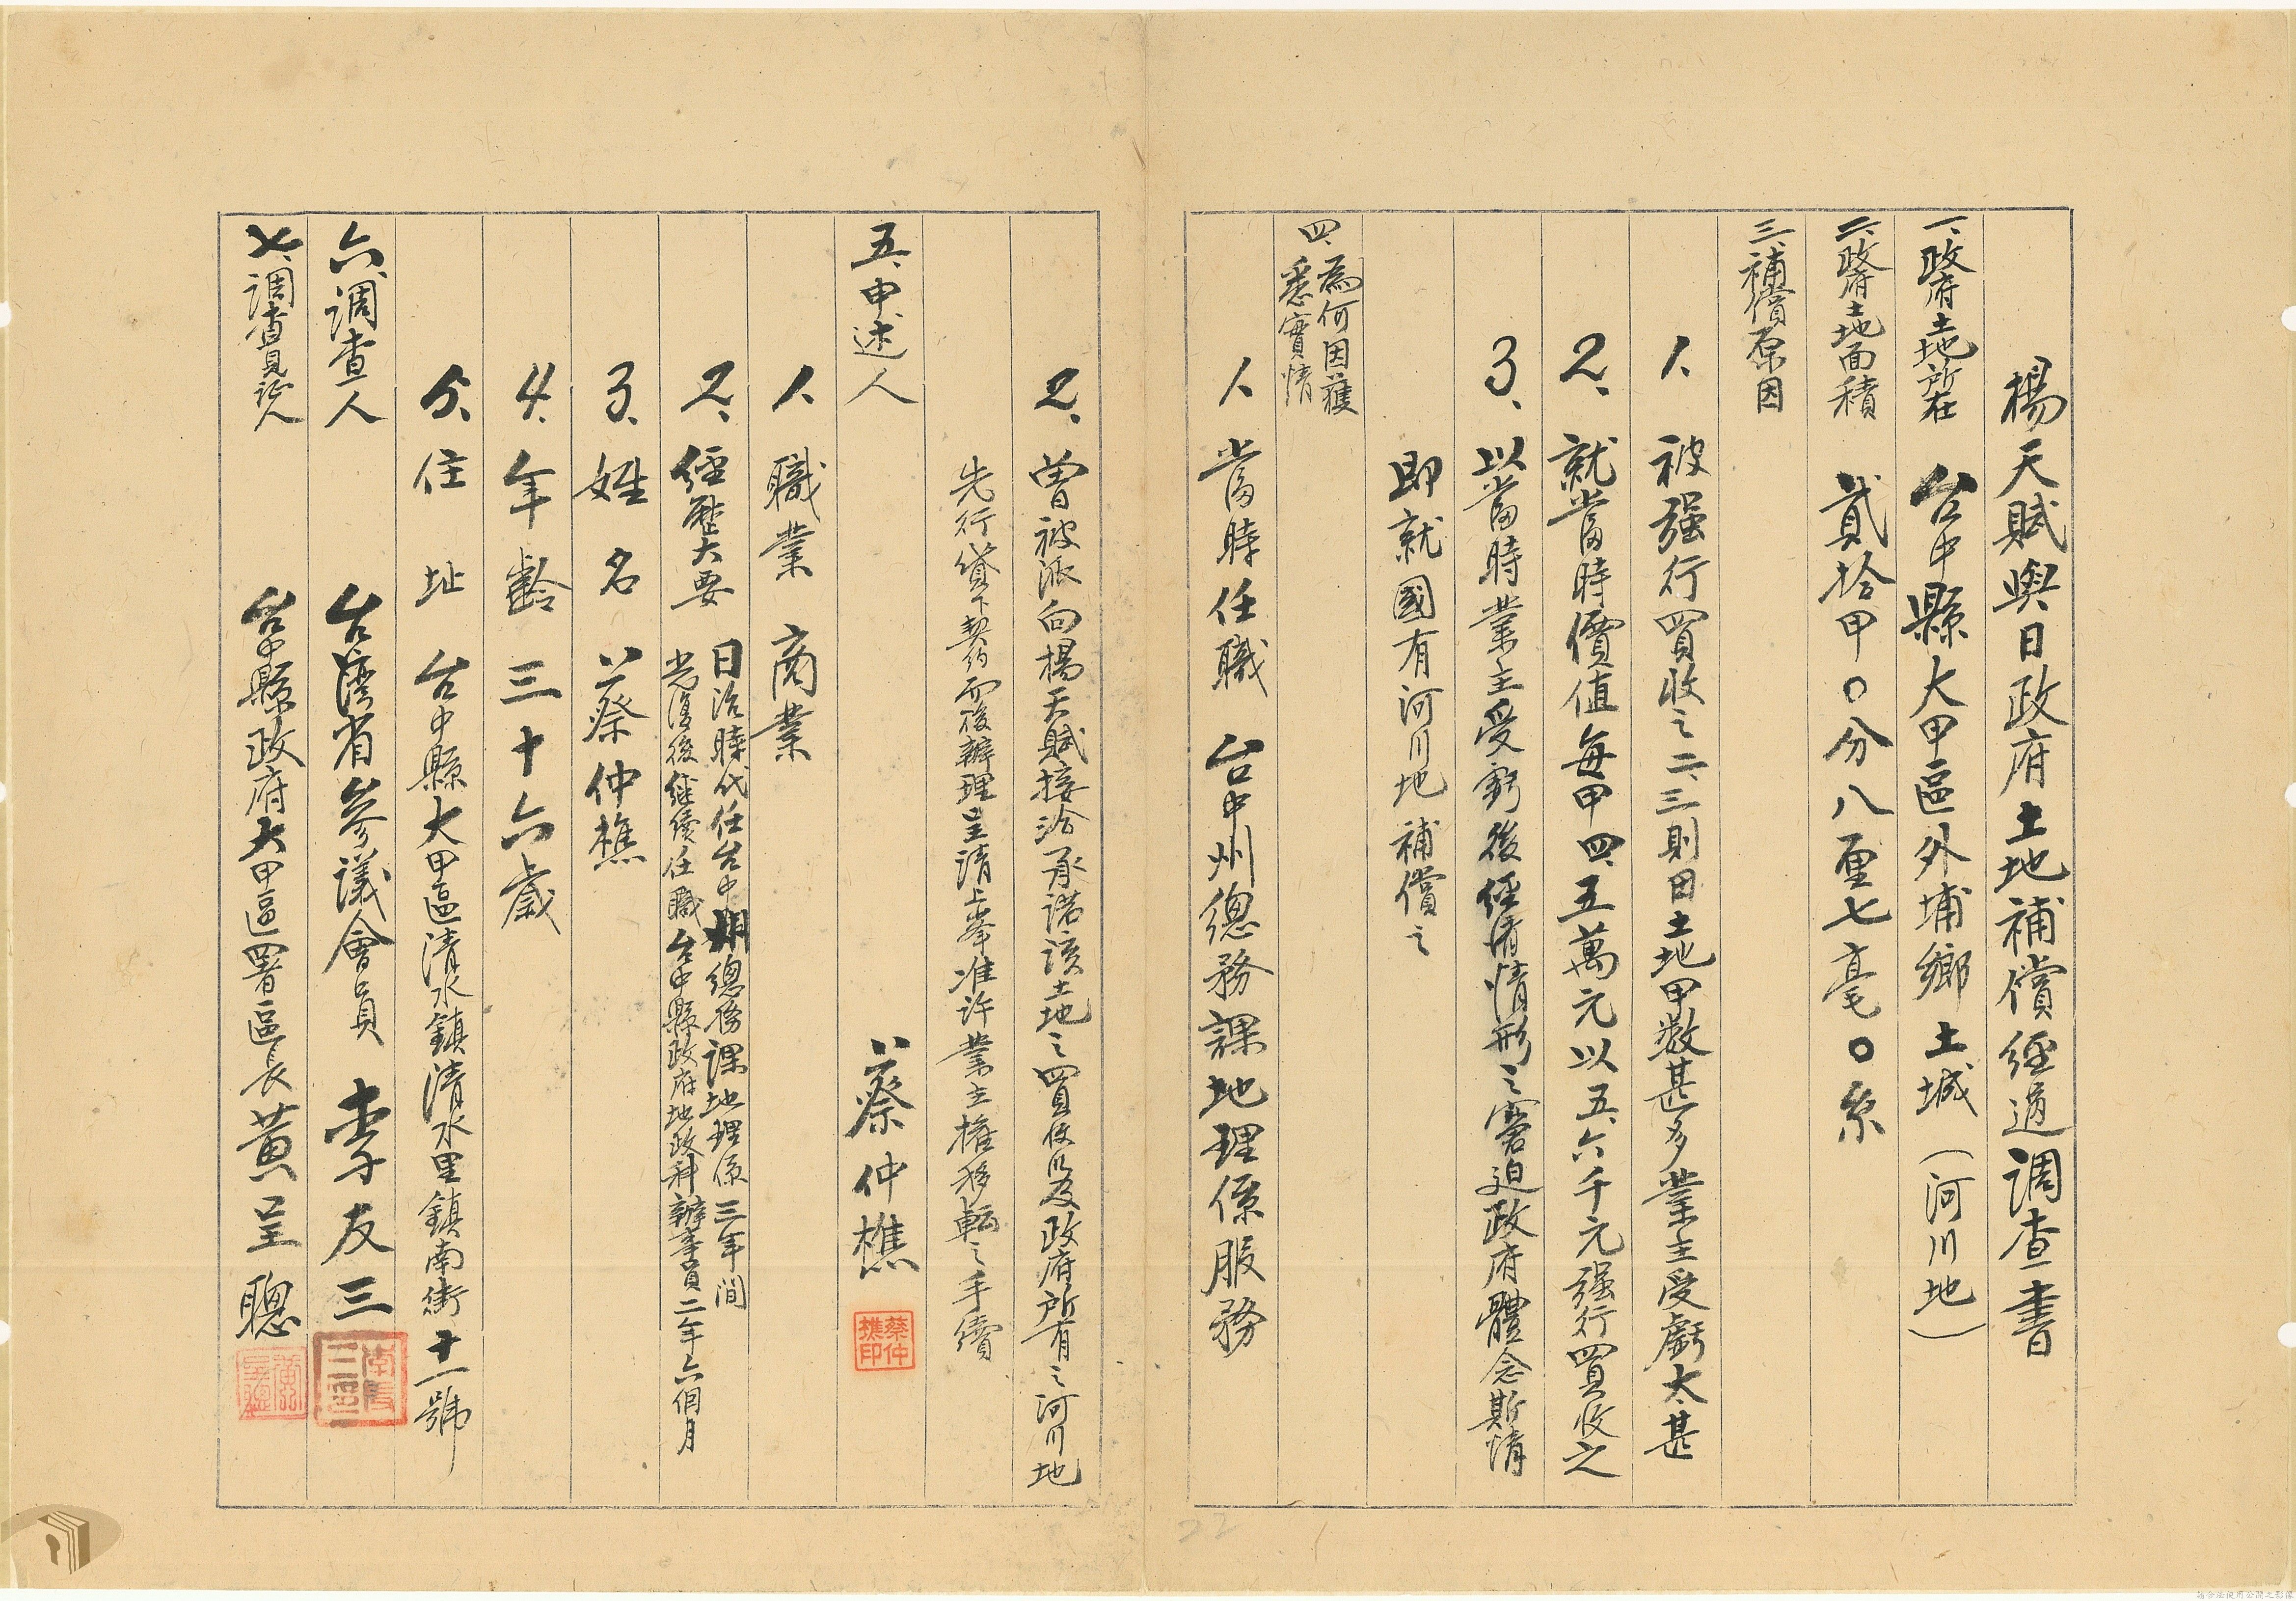 楊天賦與日政府土地補償經過調查書
一、政府土地所在　台中縣大甲區外埔鄉土城（河川地）
二、政府土地面積　貳拾甲〇分八厘七毫〇糸
三、補償原因
1、被强行買收之二、三則田土地甲数甚多業主受虧太甚
2、就當時價值每甲四、五萬元以五、六千元强行買收之
3、以當時業主受虧後經濟情形之窘迫政府體念斯情
即就國有河川地補償之
四、為何因獲
悉實情
1、當時任職　台中州總務課地理係服務
2、曾被派向楊天賦接洽承諾該土地之買收以及政府所有之河川地
先行貸下契約而後辦理呈請上峯准許業主權移転之手續
五、申述人　蔡仲樵
蔡仲
樵印
1、職業　商業
2、經歷大要　日治時代任台中州總務課地理係三年間
光復後继续任職台中縣政府地政科辦事員二年六個月
3、姓名　蔡仲樵
4、年齡　三十六歲
5、住址　台中縣大甲區清水鎮清水里鎮南街十一號
六、調查人　台湾省參議會員　李友三
七、調查見証人　台中縣政府大甲區署區長黃呈聰
請合法使用公開之影像